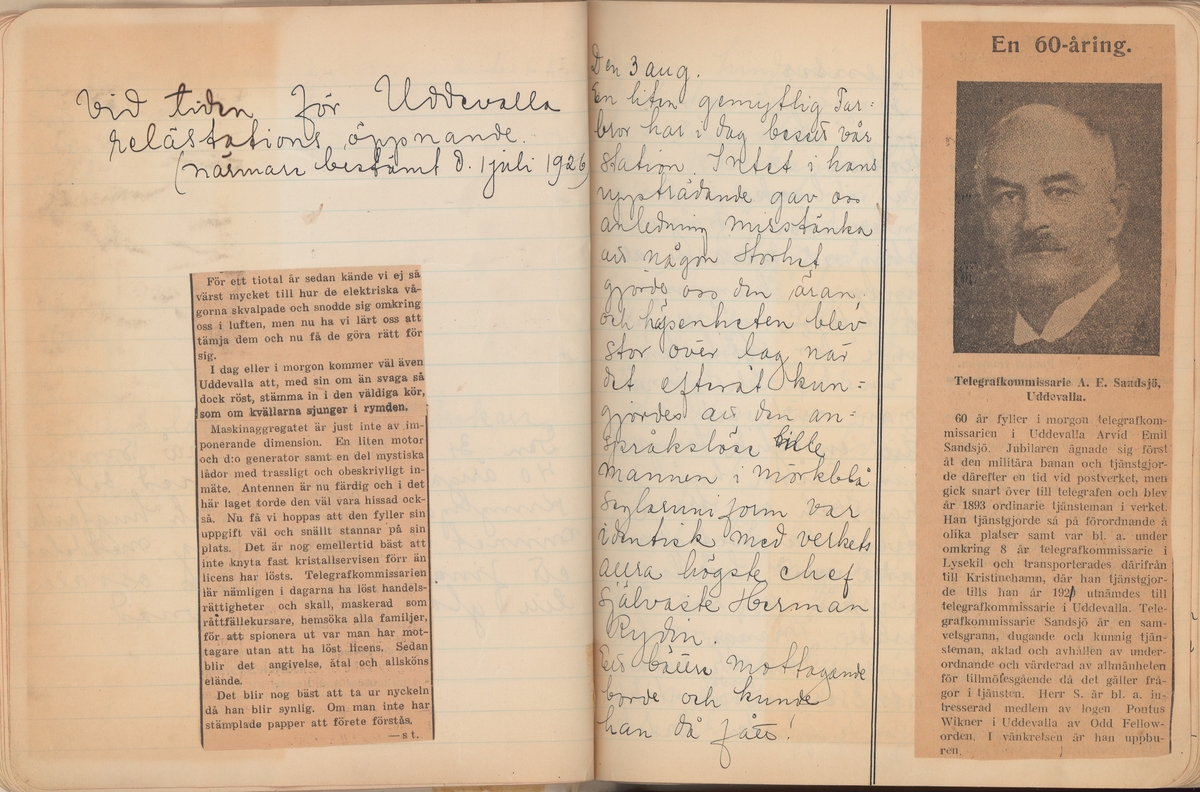 Vid tiden för Uddevalla
relästations öppnande.
(närmare bestämt d. 1 juli 1926)
För ett tiotal år sedan kände vi ej så
värst mycket till hur de elektriska vå-
gorna skvalpade och snodde sig omkring
oss i luften, men nu ha vi lärt oss att
tämja dem och nu få de göra rätt för
sig.
I dag eller i morgon kommer väl även
Uddevalla att, med sin om än svaga så
dock röst, stämma in i den väldiga kör,
som om kvällarna sjunger i rymden.
Maskinaggregatet är just inte av im-
ponerande dimension. En liten motor
och d:o generator samt en del mystiska
lådor med trassligt och obeskrivligt in-
mäte. Antennen är nu färdig och i det
här laget torde den väl vara hissad ock-
så. Nu få vi hoppas att den fyller sin
uppgift väl och snällt stannar på sin
plats. Det är nog emellertid bäst att
inte knyta fast kristallservisen förr än
licens har lösts. Telegrafkommissarien
lär nämligen i dagarna ha löst handels-
rättigheter och skall, maskerad som
råttfällekursare, hemsöka alla familjer,
för att spionera ut var man har mot-
tagare utan att ha löst licens. Sedan
blir det angivelse, åtal och allsköns
elände.
Det blir nog bäst att ta ur nyckeln
då han blir synlig. Om man inte har
stämplade papper att förete förstås.
—st.
Den 3 aug.
En liten gemytlig Far-
bror har i dag besett vår
station. Intet i hans
uppträdande gav oss
anledning misstänka
att någon Storhet
gjorde oss den äran.
och häpenheten blev
stor över lag när
det efteråt kun-
gjordes att den an-
språkslöse lille
mannen i mörkblå
seglaruniform var
identisk med verkets
allra högste chef
självaste Herman
Rydin.
Ett bättre mottagande
borde och kunde
han då fått!
En 60-åring.
Telegrafkommissarie A. E. Sandsjö,
Uddevalla.
60 år fyller i morgon telegrafkom-
missarien i Uddevalla Arvid Emil
Sandsjö. Jubilaren ägnade sig först
åt den militära banan och tjänstgjor-
de därefter en tid vid postverket, men
gick snart över till telegrafen och blev
år 1893 ordinarie tjänsteman i verket.
Han tjänstgjorde så på förordnande å
olika platser samt var bl. a. under
omkring 8 år telegrafkommissarie i
Lysekil och transporterades därifrån
till Kristinehamn, där han tjänstgjor-
de tills han år utnämndes till
telegrafkommissarie i Uddevalla. Tele-
grafkommissarie Sandsjö är en sam-
vetsgrann, dugande och kunnig tjän-
steman, aktad och avhållen av under-
ordnande och värderad av allmänheten
för tillmötesgående då det gäller frå-
gor i tjänsten. Herr S. är bl. a. in-
tresserad medlem av logen Pontus
Wikner i Uddevalla av Odd Fellow-
orden. I vänkretsen är han uppbu-
ren.